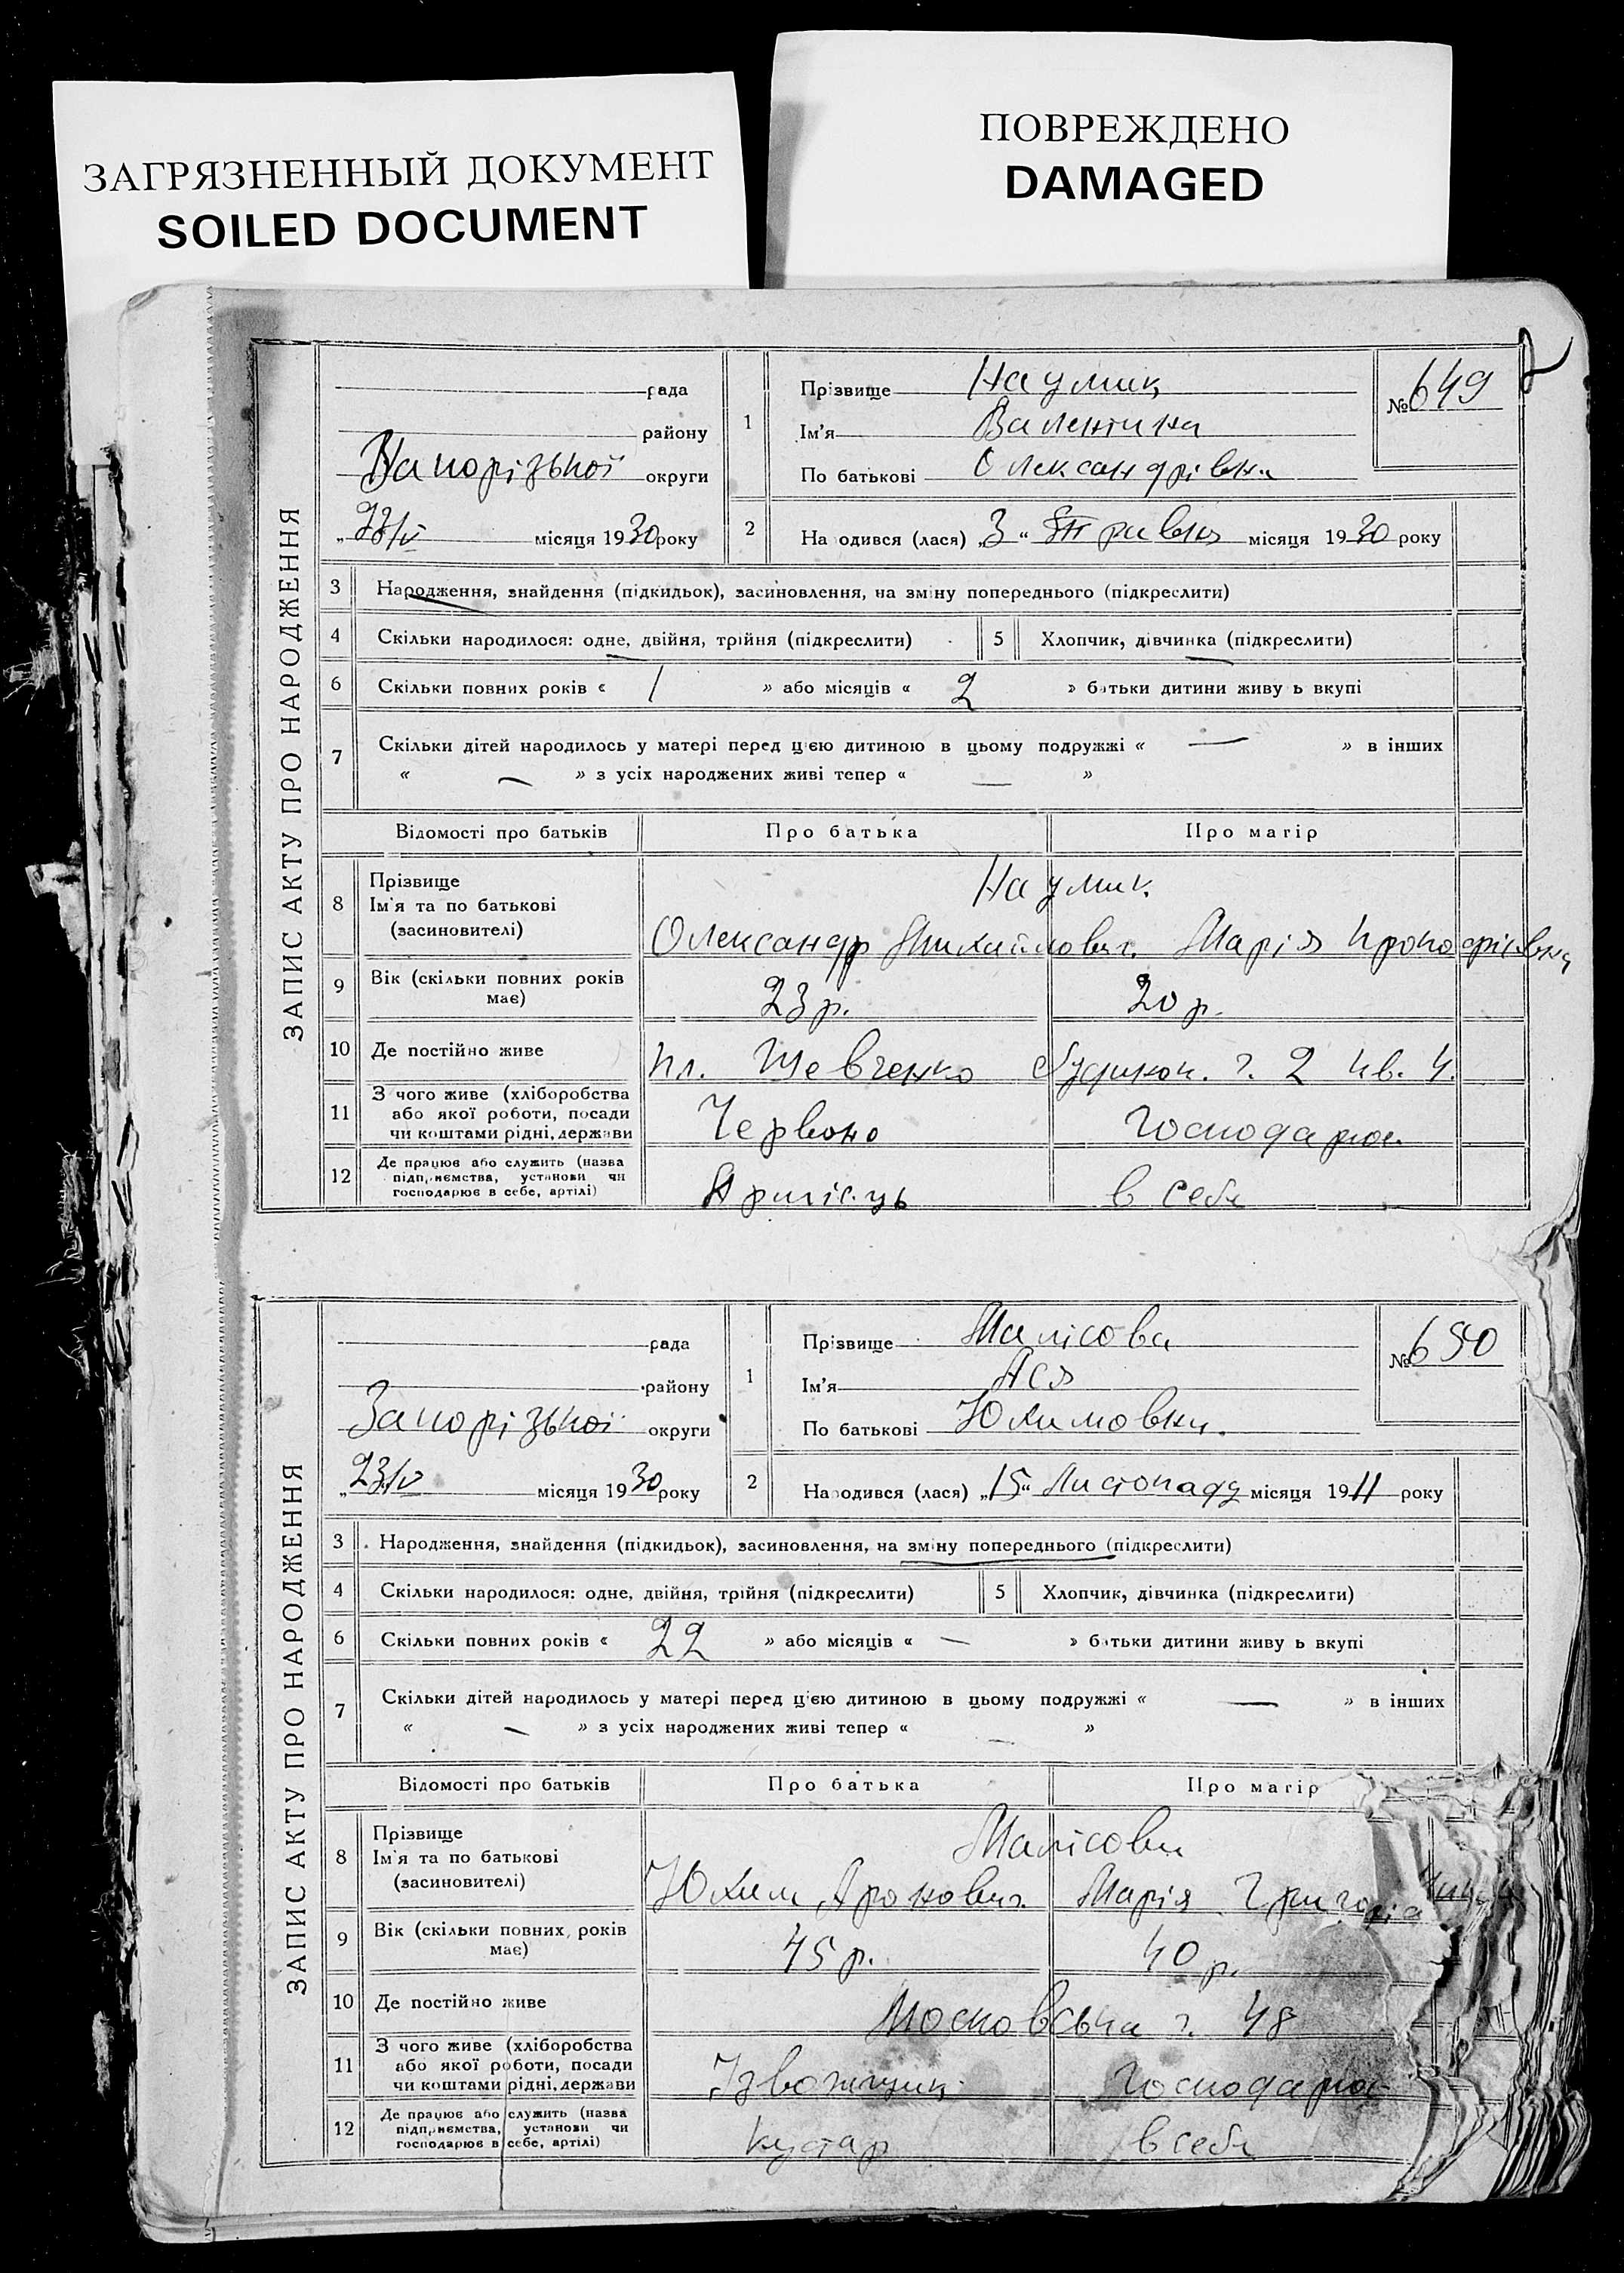 ЗАГРЯЗНЕННЫЙ ДОКУМЕНТ
SOILED DOCUMENT
ПОВРЕЖДЕНО
DAMAGED
ЗАПИС АКТУ ПРО НАРОДЖЕННЯ
рада
району
Запорізької округи
„23/V місяця 1930 року
1
Прізвище Наумик
Ім'я Валентина
По батькові Олександрівна
№ 649
2
Народився (лася) „3“ Травня місяця 1930 року
3 Народження, знайдення (підкидьок), засиновлення, на зміну попереднього (підкреслити)
4 Скільки народилося: одне, двійня, трійня (підкреслити) 5 Хлопчик, дівчинка (підкреслити)
6 Скільки повних років « 1 » або місяців « 2 » батьки дитини живуть вкупі
7 Скільки дітей народилось у матері перед цією дитиною в цьому подружжі « — » в інших
« — » з усіх народжених живі тепер « — »
Відомості про батьків Про батька Про матір
8 Прізвище
Ім'я та по батькові
(засновителі)
Наумик
Олександр Михайлович. Марія
9 Вік (скільки повних років має) 23 р. 20 р.
10 Де постійно живе пл. Шевченко г. 2 кв. 4.
11 З чого живе (хліборобства
або якої роботи, посади
чи коштами рідні, держави
Червоно Господарює
12 Де працює або служить (назва
підприємства, установи чи
господарює в себе, артілі)
Армієць в себе
ЗАПИС АКТУ ПРО НАРОДЖЕННЯ
рада
району
Запорізької округи
„23/V місяця 1930 року
1
Прізвище
Ім'я Ася
По батькові Юхимовна
№ 650
2
Народився (лася) „15“ Листопаду місяця 1911 року
3 Народження, знайдення (підкидьок), засиновлення, на зміну попереднього (підкреслити)
4 Скільки народилося: одне, двійня, трійня (підкреслити) 5 Хлопчик, дівчинка (підкреслити)
6 Скільки повних років « 22 » або місяців « — » батьки дитини живуть вкупі
7 Скільки дітей народилось у матері перед цією дитиною в цьому подружжі « — » в інших
« — » з усіх народжених живі тепер « »
Відомості про батьків Про батька Про матір
8 Прізвище
Ім'я та по батькові
(засиновителі)
Юхим Аронович. Марія
9 Вік (скільки повних років має) 45 р. 40 р.
10 Де постійно живе Московська г. 48
11 З чого живе (хліборобства
або якої роботи, посади
чи коштами рідні, держави
Ізвожчик Господарює
12 Де працює або служить (назва
підприємства, установи чи
господарює в себе, артілі)
кустар в себе